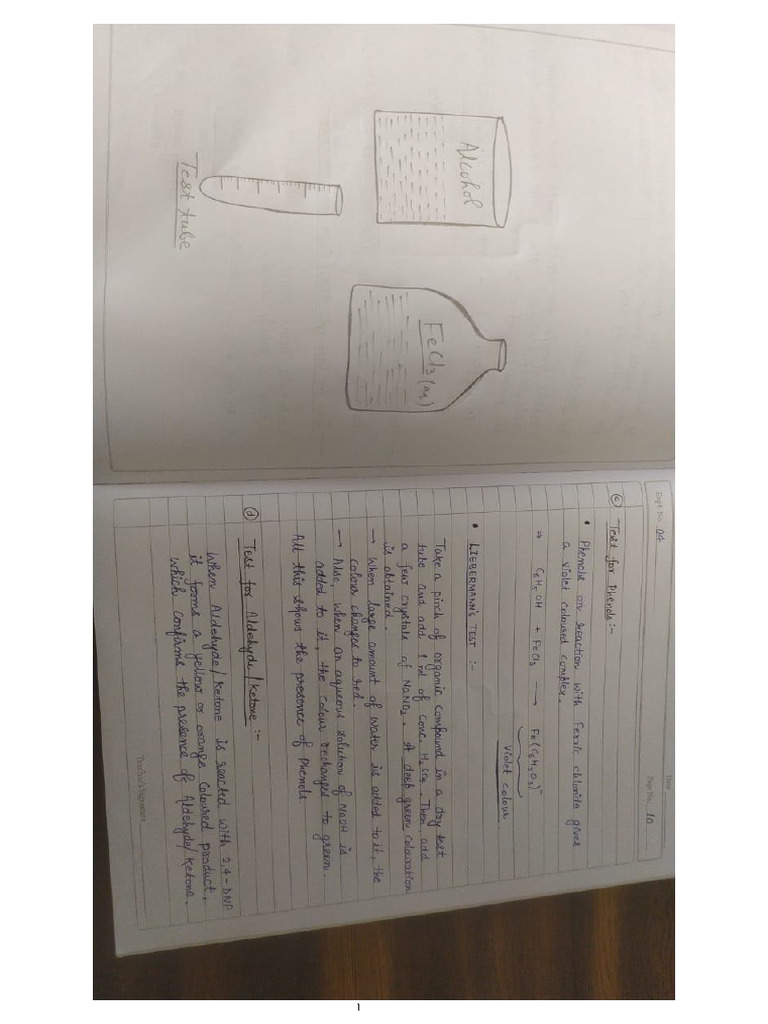 Alcohol
FeCl3 (aq)
Test tube
Expt. No. 04
Date
Page No. 10
(c) Test for Phenols :-
• Phenols on reaction with Ferric chloride gives
a violet coloured complex.
⇒ C6H5OH + FeCl3 ⟶ Fe(C6H5O3)⁻
violet colour
• LIEBERMANN'S TEST :-
Take a pinch of organic compound in a dry test
tube and add 1 ml of conc. H2SO4. Then add
a few crystals of NaNO2. A deep green colouration
is obtained.
→ When large amount of water is added to it, the
colour changes to red.
→ Also, when an aqueous solution of NaOH is
added to it, the colour rechanges to green.
All this shows the presence of Phenols
(d) Test for Aldehyde/Ketone :-
When Aldehyde/Ketone is reacted with 2,4-DNP
it forms a yellow or orange coloured product,
which confirms the presence of Aldehyde/Ketone.
Teacher's Signature
1